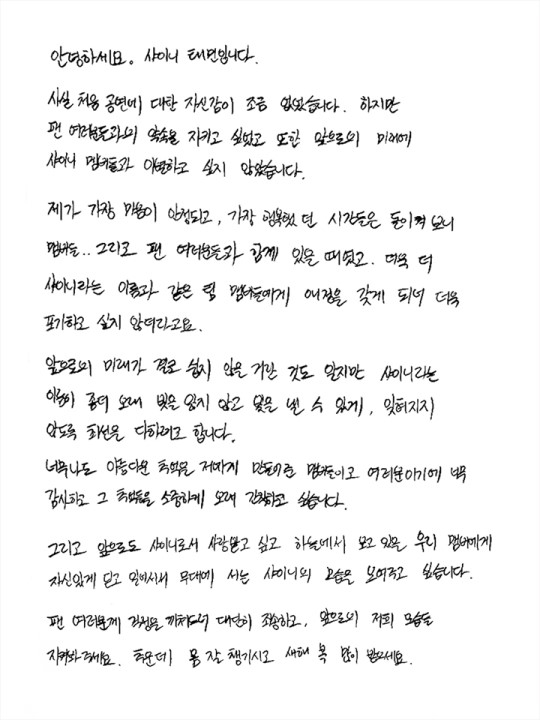 안녕하세요. 샤이니 태민입니다.
사실 처음 공연에 대한 자신감이 조금 없었습니다. 하지만
팬 여러분들과의 약속을 지키고 싶었고 또한 앞으로의 미래에
샤이니 멤버들과 이별하고 싶지 않았습니다.
제가 가장 마음이 안정되고, 가장 행복했던 시간들은 돌이켜보니
멤버들.. 그리고 팬 여러분들과 함께 있을 때였고. 더욱 더
샤이니라는 이름과 같은 팀 멤버들에게 애정을 갖게 되니 더욱
포기하고 싶지 않더라고요.
앞으로의 미래가 결코 쉽지 않을 거란 것도 알지만 샤이니라는
이름이 좀더 오래 빛을 잃지 않고 빛을 낼 수 있게, 잊혀지지
않도록 최선을 다하려고 합니다.
너무나도 아름다운 추억을 저에게 만들어준 멤버들이고 여러분이기에 너무
감사하고 그 추억들을 소중하게 오래 간직하고 싶습니다.
그리고 앞으로도 샤이니로서 사랑받고 싶고 하늘에서 보고 있을 우리 멤버에게
자신있게 딛고 일어서서 무대에 서는 샤이니의 모습을 보여주고 싶습니다.
팬 여러분께 걱정을 끼쳐드려 대단히 죄송하고, 앞으로의 저희 모습을
지켜봐주세요. 추운데 몸 잘 챙기시고 새해 복 많이 받으세요.